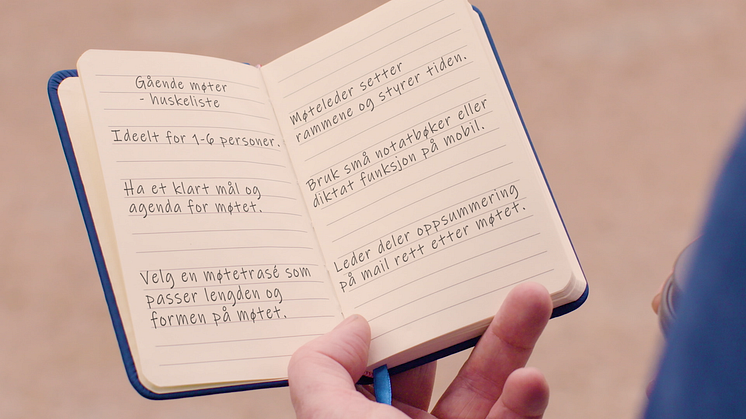 Gående møter
- huskeliste
Ideelt for 1-6 personer.
Ha et klart mål og
agenda for møtet.
Velg en møtetrasé som
passer lengden og
formen på møtet.
Møteleder setter
rammene og styrer tiden.
Bruk små notatbøker eller
diktat funksjon på mobil.
Leder deler oppsummering
på mail rett etter møtet.